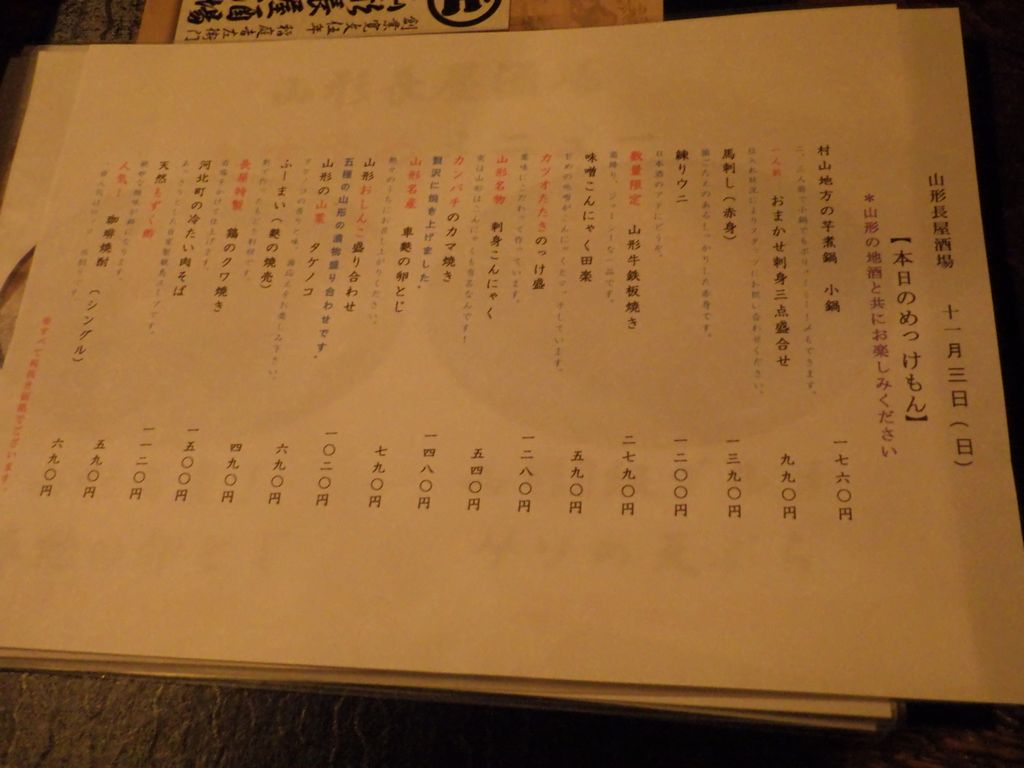 山形長屋酒場 十一月三日(日)
【本日のめっけもん】
*山形の地酒と共にお楽しみください
村山地方の芋煮鍋 小鍋 一七六〇円
一人前 おまかせ刺身三点盛合せ 九九〇円
馬刺し(赤身) 一三九〇円
練りウニ 一二〇〇円
日本酒のアテにどうぞ。
数量限定 山形牛鉄板焼き 二七九〇円
味噌こんにゃく田楽 五九〇円
カツオたたきのっけ盛 一二八〇円
山形名物 刺身こんにゃく 五四〇円
実は山形はこんにゃくも有名なんです!
カンパチのカマ焼き 一四八〇円
贅沢に焼き上げました。
山形名産 車麩の卵とじ 七九〇円
山形おしんこ盛り合わせ 一〇二〇円
五種の山形の漬物盛り合わせです。
山形の山菜 タケノコ 六九〇円
ふーまい(麩の焼売) 四九〇円
長屋特製 鶏のクワ焼き 一五〇〇円
河北町の冷たい肉そば 一一二〇円
天然もずく酢 五九〇円
人気! 珈琲焼酎 (シングル) 六九〇円
※すべて税抜き価格でございます。
創業寛文伍年 稲庭吉左衛門